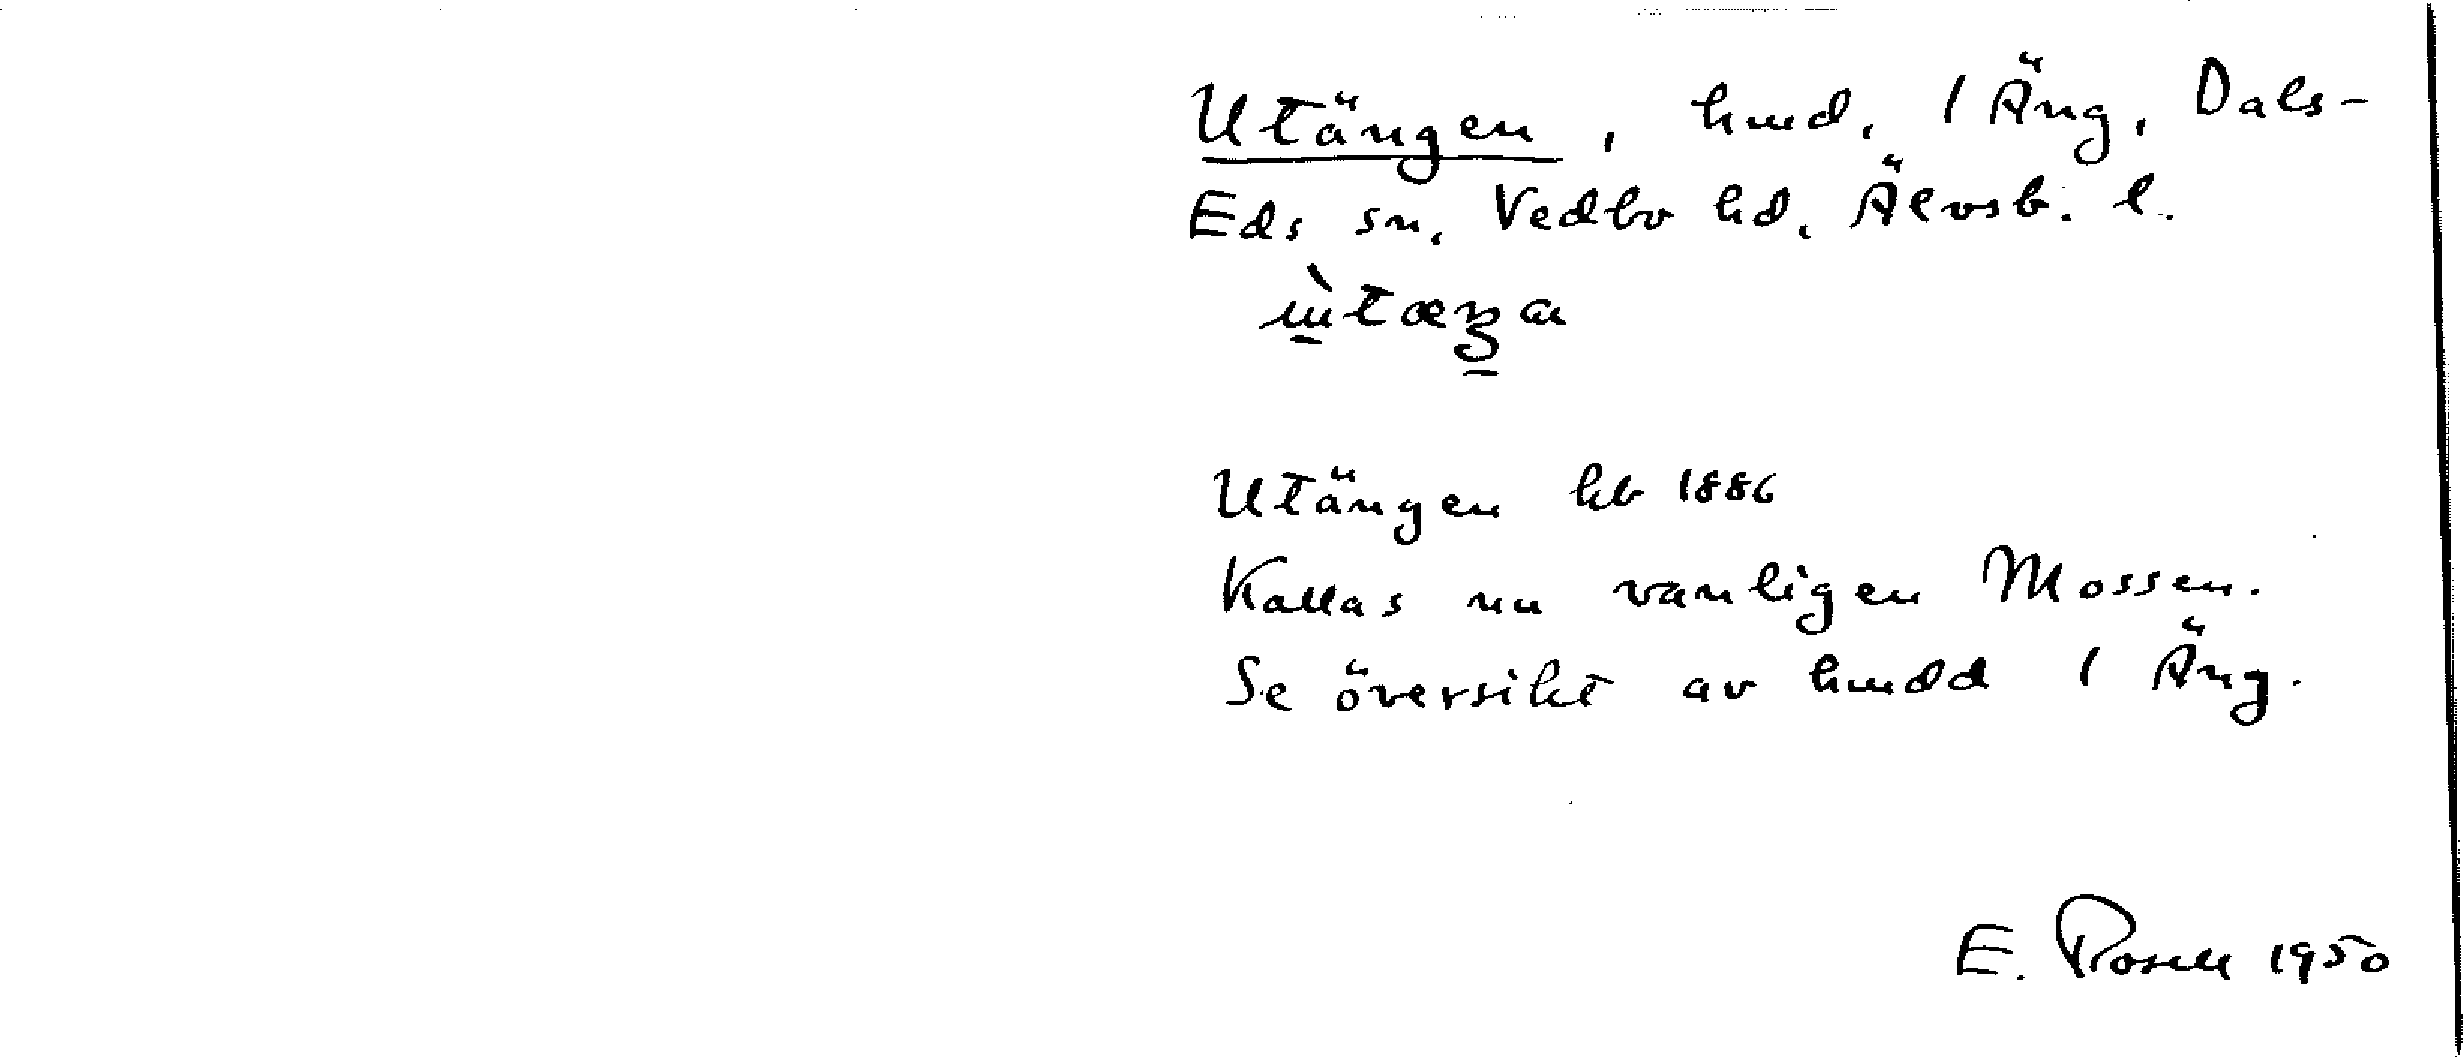 Utängen, hmd. 1 Äng, Dals-
Eds sn, Vedbo hd. Älvsb. l.
Utängen hb 1886
Kallas nu vanligen Mossen.
Se översikt av hmdd 1 Äng.
E. Rosell 1950